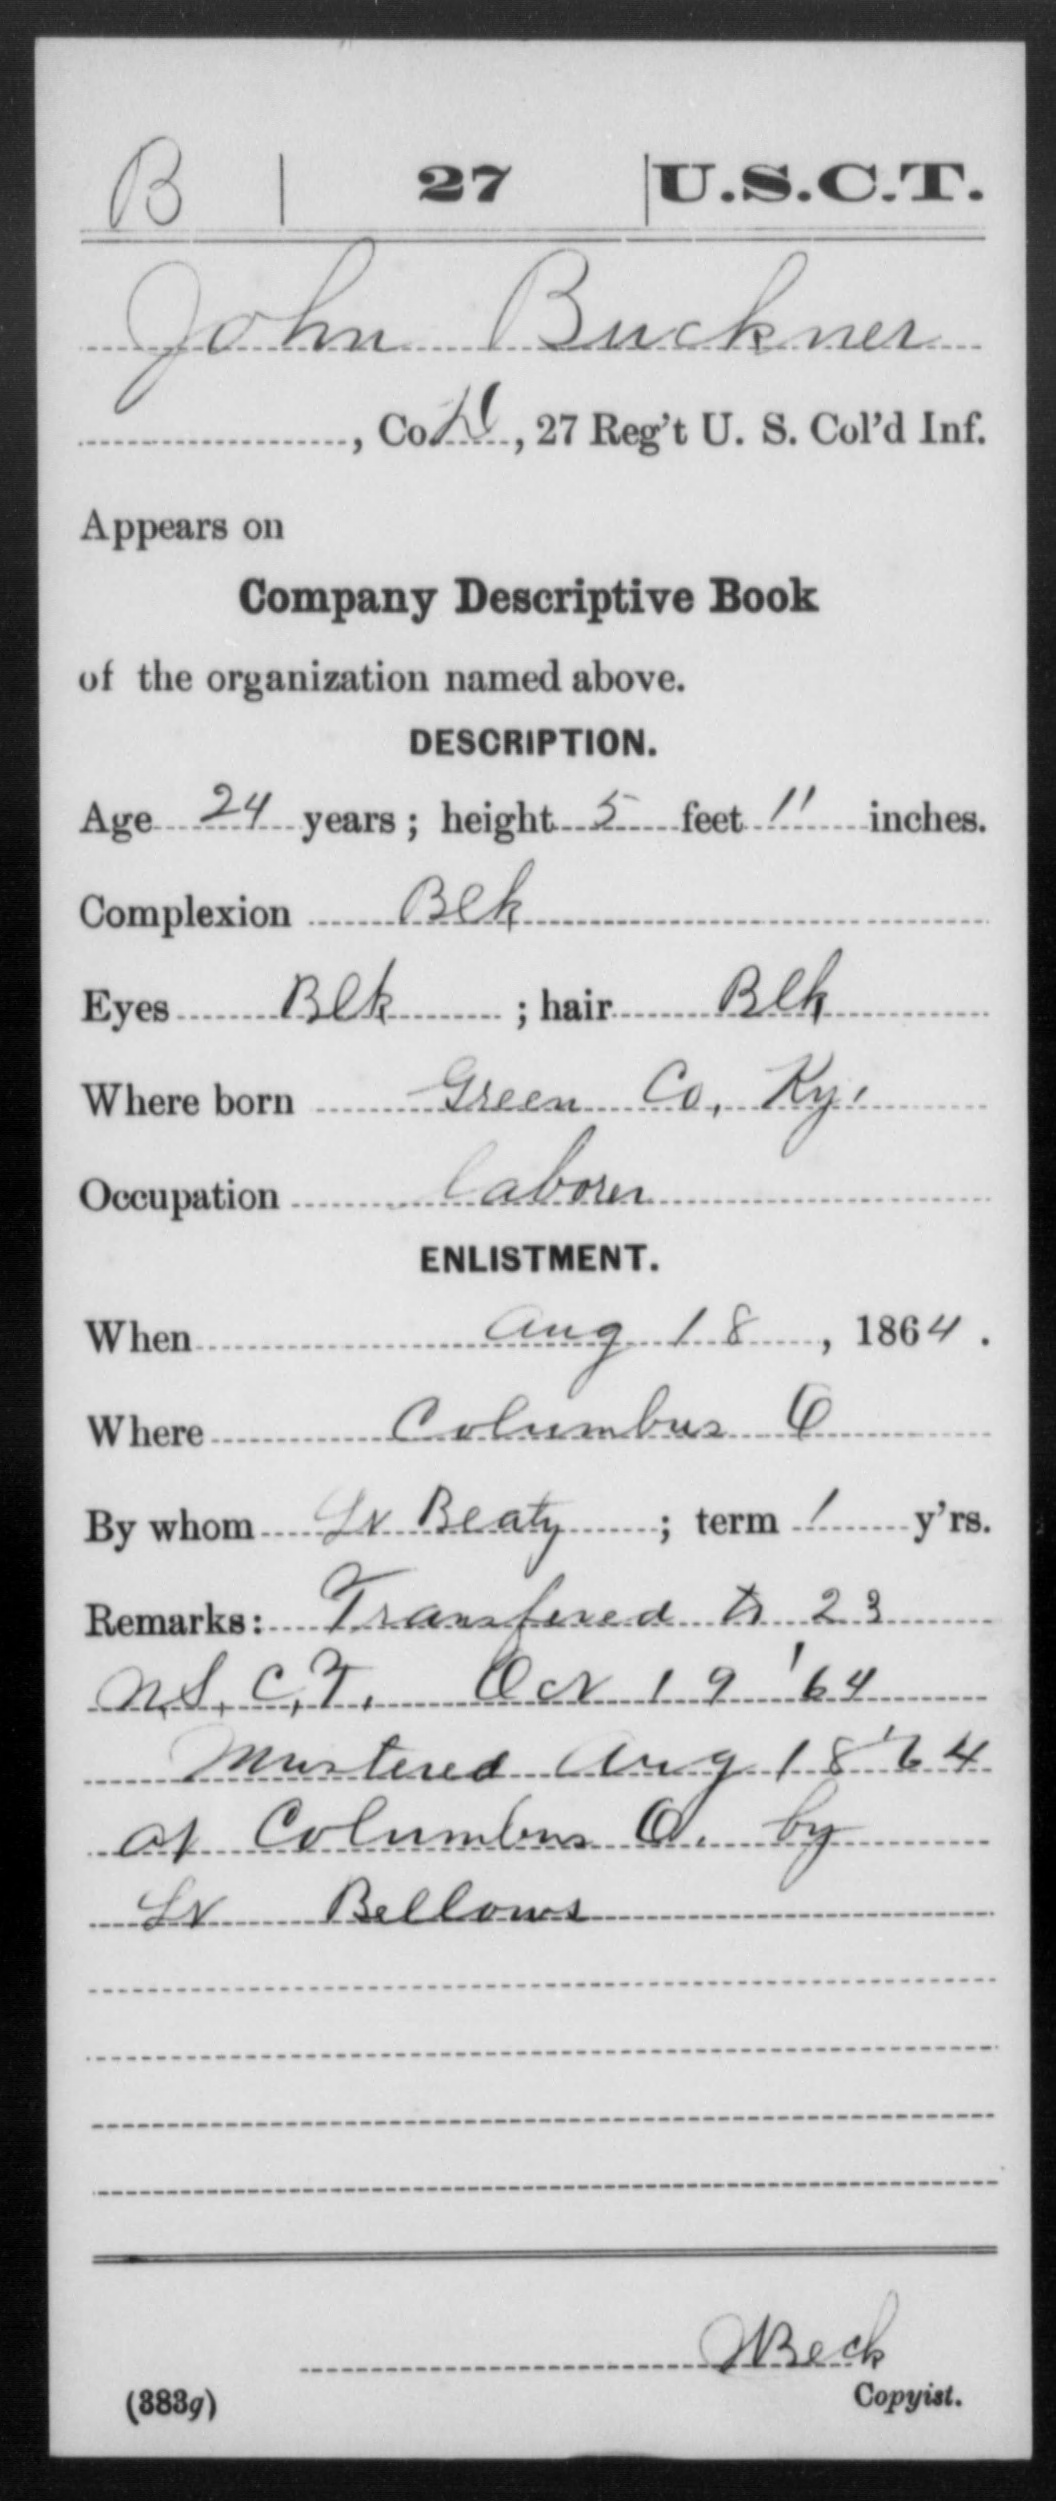 B | 27 | U.S.C.T.
John Buckner
, Co. D, 27 Reg't U. S. Col'd Inf.
Appears on
Company Descriptive Book
of the organization named above.
DESCRIPTION.
Age 24 years; height 5 feet 11 inches.
Complexion Blk
Eyes Blk ; hair Blk
Where born Green Co, Ky.
Occupation laborer
ENLISTMENT.
When Aug 18, 1864.
Where Columbus O
By whom Lt Beaty ; term 1 y'rs.
Remarks: Transfered to 23
U.S.C.T. Oct 19 '64
Mustered Aug 18 '64
at Columbus O. by
Lt Bellows
Beck
(383g) Copyist.